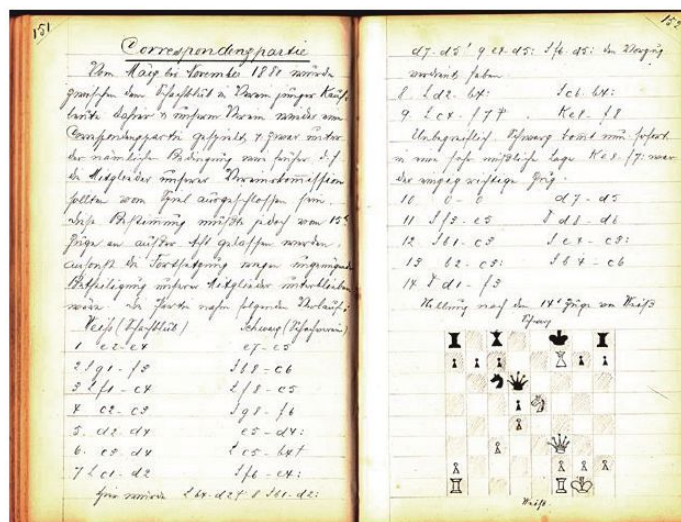 151
Correspondenzpartie
Vom März bis November 1880 wurde
zwischen dem Schachklub im Verein junger Kauf-
leute dahier & unserem Verein wieder eine
Correspondenzpartie gespielt & zwar unter
der nämlichen Bedingung wie früher d. h.
die Mitglieder unserer Vereinskommission
sollten vom Spiel ausgeschlossen sein.
Diese Bestimmung mußte jedoch vom 15t
Zuge an außer Acht gelassen werden,
ansonst die Fortsetzung wegen ungenügender
Betheiligung unserer Mitglieder unterblieben
wäre. Die Partie nahm folgenden Verlauf:
Weiß (Schachklub) Schwarz (Schachverein)
1 e2 - e4 e7 - e5
2 S g1 - f3 S b8 - c6
3 L f1 - c4 L f8 - c5
4 c2 - c3 S g8 - f6
5. d2 - d4 e5 - d4:
6 c3 - d4 L c5 - b4†
7 L c1 - d2 S f6 - e4:
Hier würde L b4 - d2† 8 S b1 - d2:
152
d7 - d5! 9 e4 - d5: S f6 - d5: den Vorzug
verdient haben.
8. L d2 - b4: S c6 - b4:
9 L c4 - f7† K e8 - f8
Unbegreiflich. Schwarz kommt nun sofort
in eine sehr mißliche Lage. K e8 - f7: war
der einzig richtige Zug.
10 0 - 0 d7 - d5
11 S f3 - e5 D d8 - d6
12 S b1 - c3 S e4 - c3:
13 b2 - c3: S b4 - c6
14 D d1 - f3
Stellung nach dem 14t Zuge von Weiß
Schwarz
Weiß.